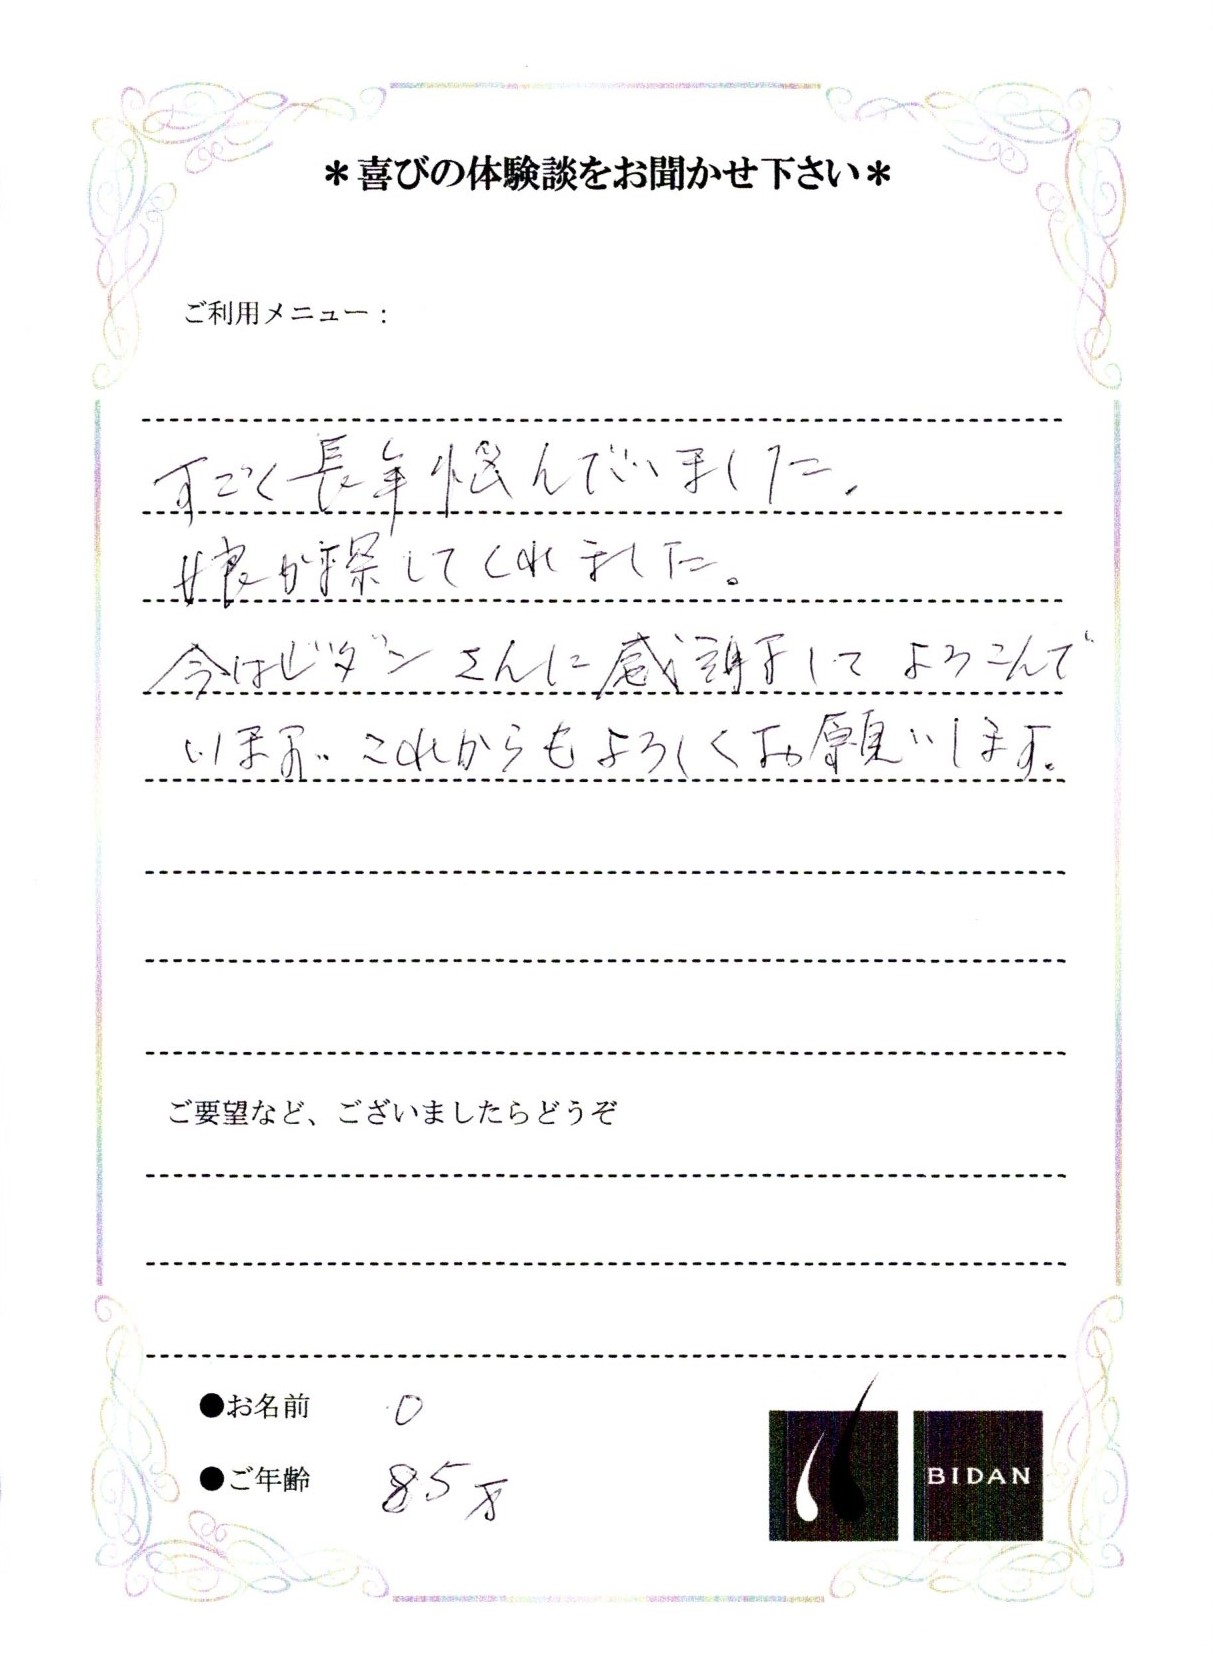 ＊喜びの体験談をお聞かせ下さい＊
ご利用メニュー：
すごく長年悩んでいました。
娘が探してくれました。
今はビダンさんに感謝してよろこんで
います。これからもよろしくお願いします。
ご要望など、ございましたらどうぞ
●お名前 O
●ご年齢 85才
BIDAN